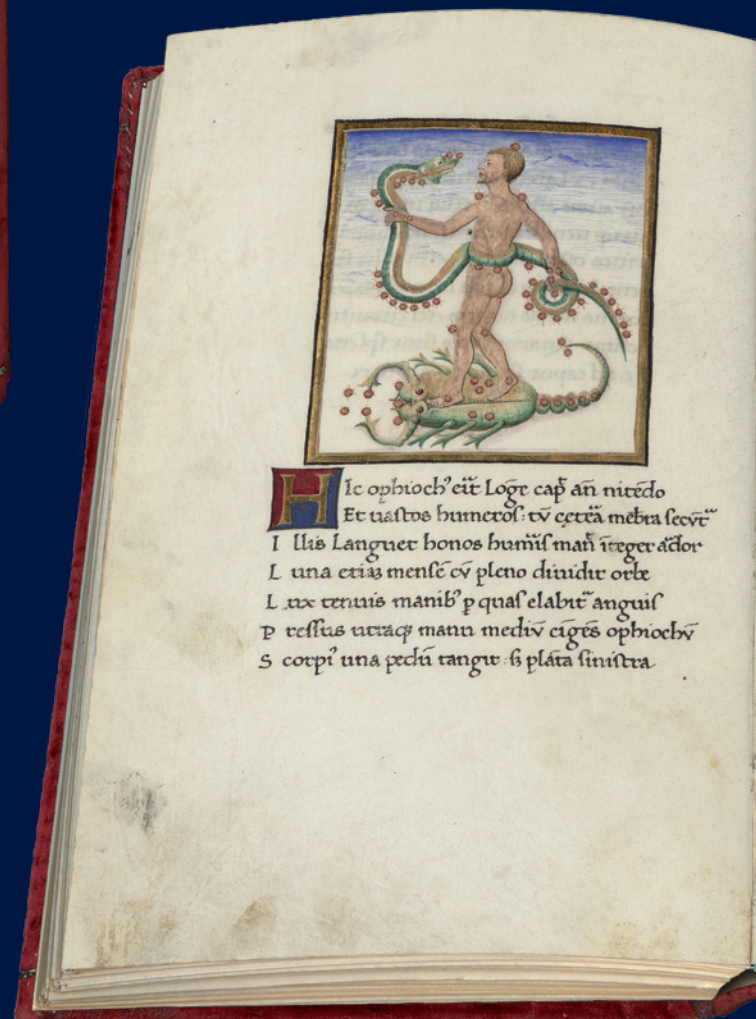 HIc ophioch᾽ eīt Lōge cap̄ an̄ nitēdo
Et uastos humeros: tū cęteā mēbra secūt᷑
Illis Languet honos humīs man̄ īteger ādor
Luna etiaꝫ mense cū pleno diuidit orbe
Lux tenuis manib᾽ p quas elabit᷑ anguis
Pressus utraqꝫ manu mediū cīgēs ophiochū
Scorpi᾽ una pedū tangit: sꝫ plāta sinistra